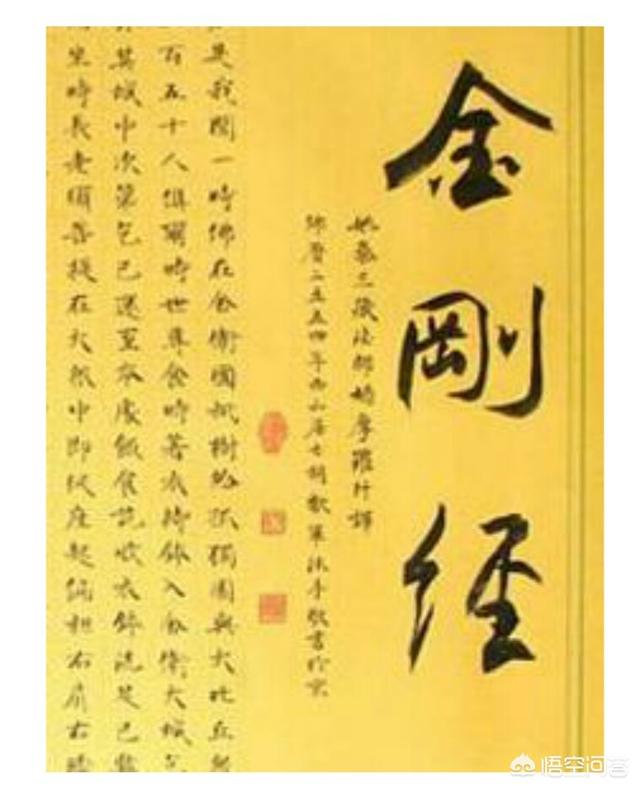 金剛經
姚秦三藏法師鳩摩羅什譯
佛曆二五五四年西山居士軍沐手敬書於京
是我聞一時佛在舍衛國祇樹給孤獨園與大比丘眾
百五十人俱爾時世尊食時著衣持鉢入舍衛大城乞
其城中次第乞已還至本處飯食訖收衣鉢洗足已敷
坐時長老須菩提在大眾中即從座起偏袒右肩右膝
悟空问答